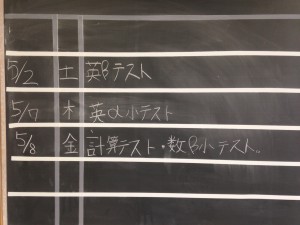 5/2 土 英βテスト
5/7 木 英α小テスト
5/8 金 計算テスト・数β小テスト。